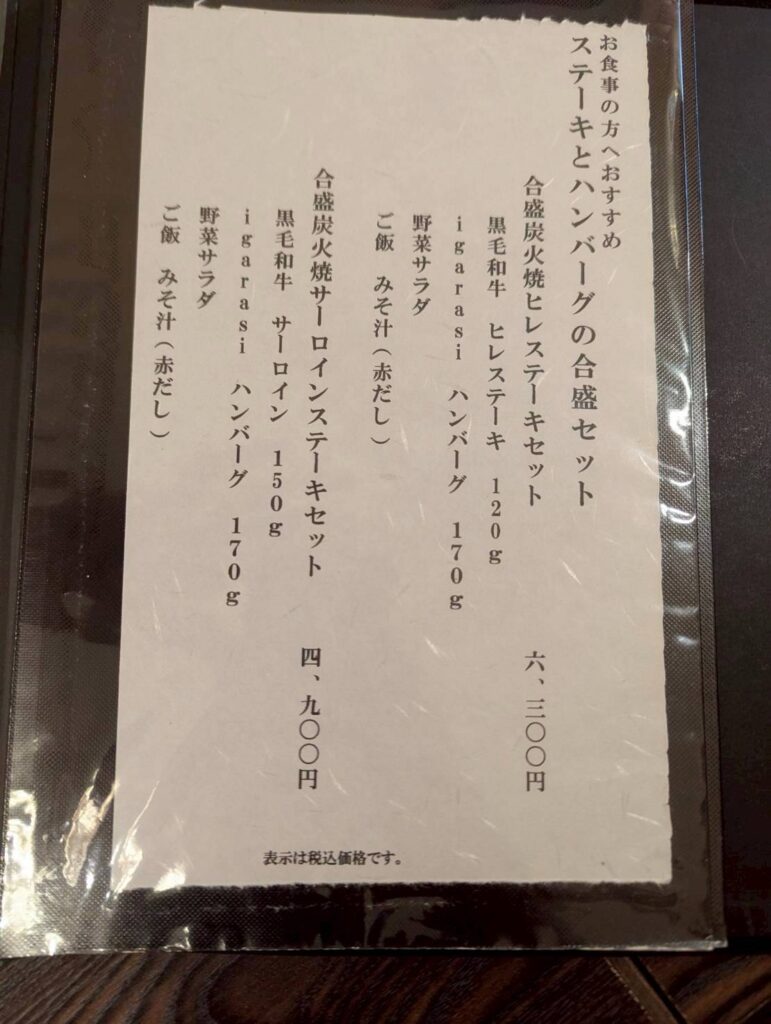 お食事の方へおすすめ
ステーキとハンバーグの合盛セット
合盛炭火焼ヒレステーキセット 六、三〇〇円
黒毛和牛 ヒレステーキ 120g
igarasi ハンバーグ 170g
野菜サラダ
ご飯 みそ汁(赤だし)
合盛炭火焼サーロインステーキセット 四、九〇〇円
黒毛和牛 サーロイン 150g
igarasi ハンバーグ 170g
野菜サラダ
ご飯 みそ汁(赤だし)
表示は税込価格です。